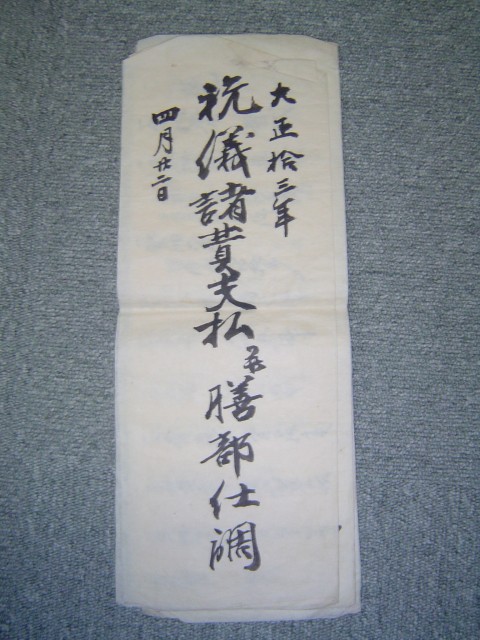 大正拾三年
祝儀諸費支払並膳部仕調
四月廿二日